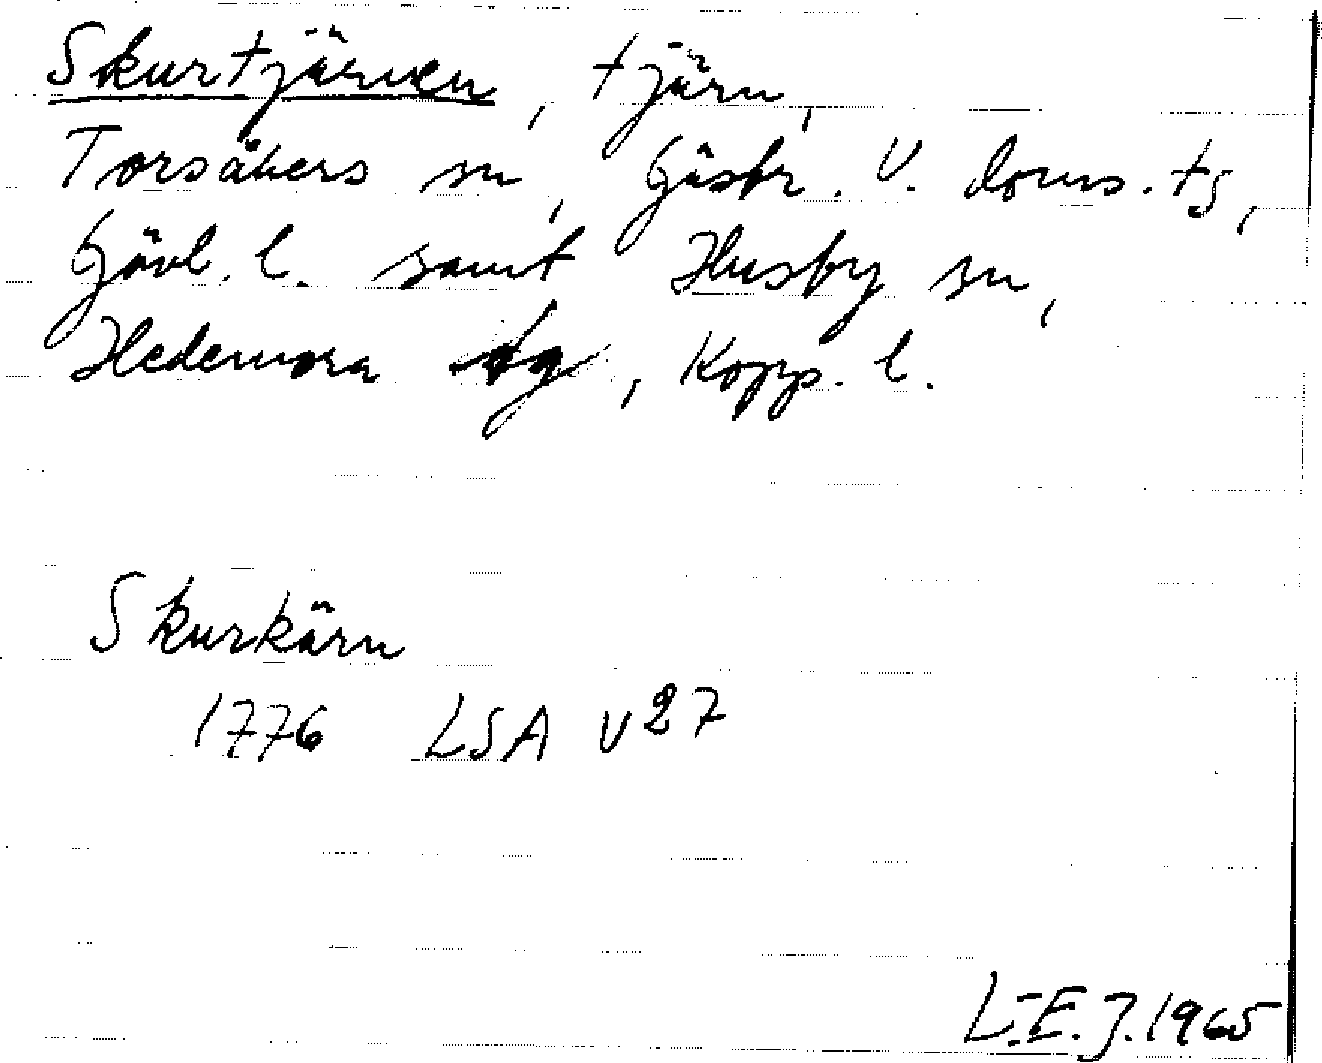 Skurtjärnen, tjärn,
Torsåkers sn, Gästr. V. doms. tg,
Gävl. l. samt Husby sn,
Hedemora tg, Kopp. l.
Skurkärn
1776 LSA v27
L-E. J. 1965